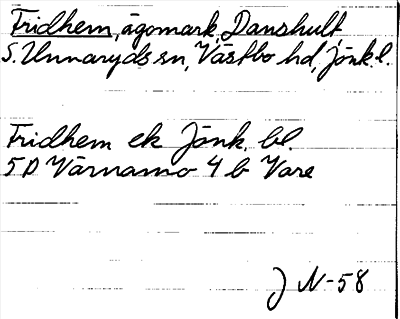 Fridhem, ägomark, Danshult,
S. Unnaryds sn, Västbo hd, Jönk. l.
Fridhem ek Jönk. bl.
5D Värnamo 4 b Vare
J N-58